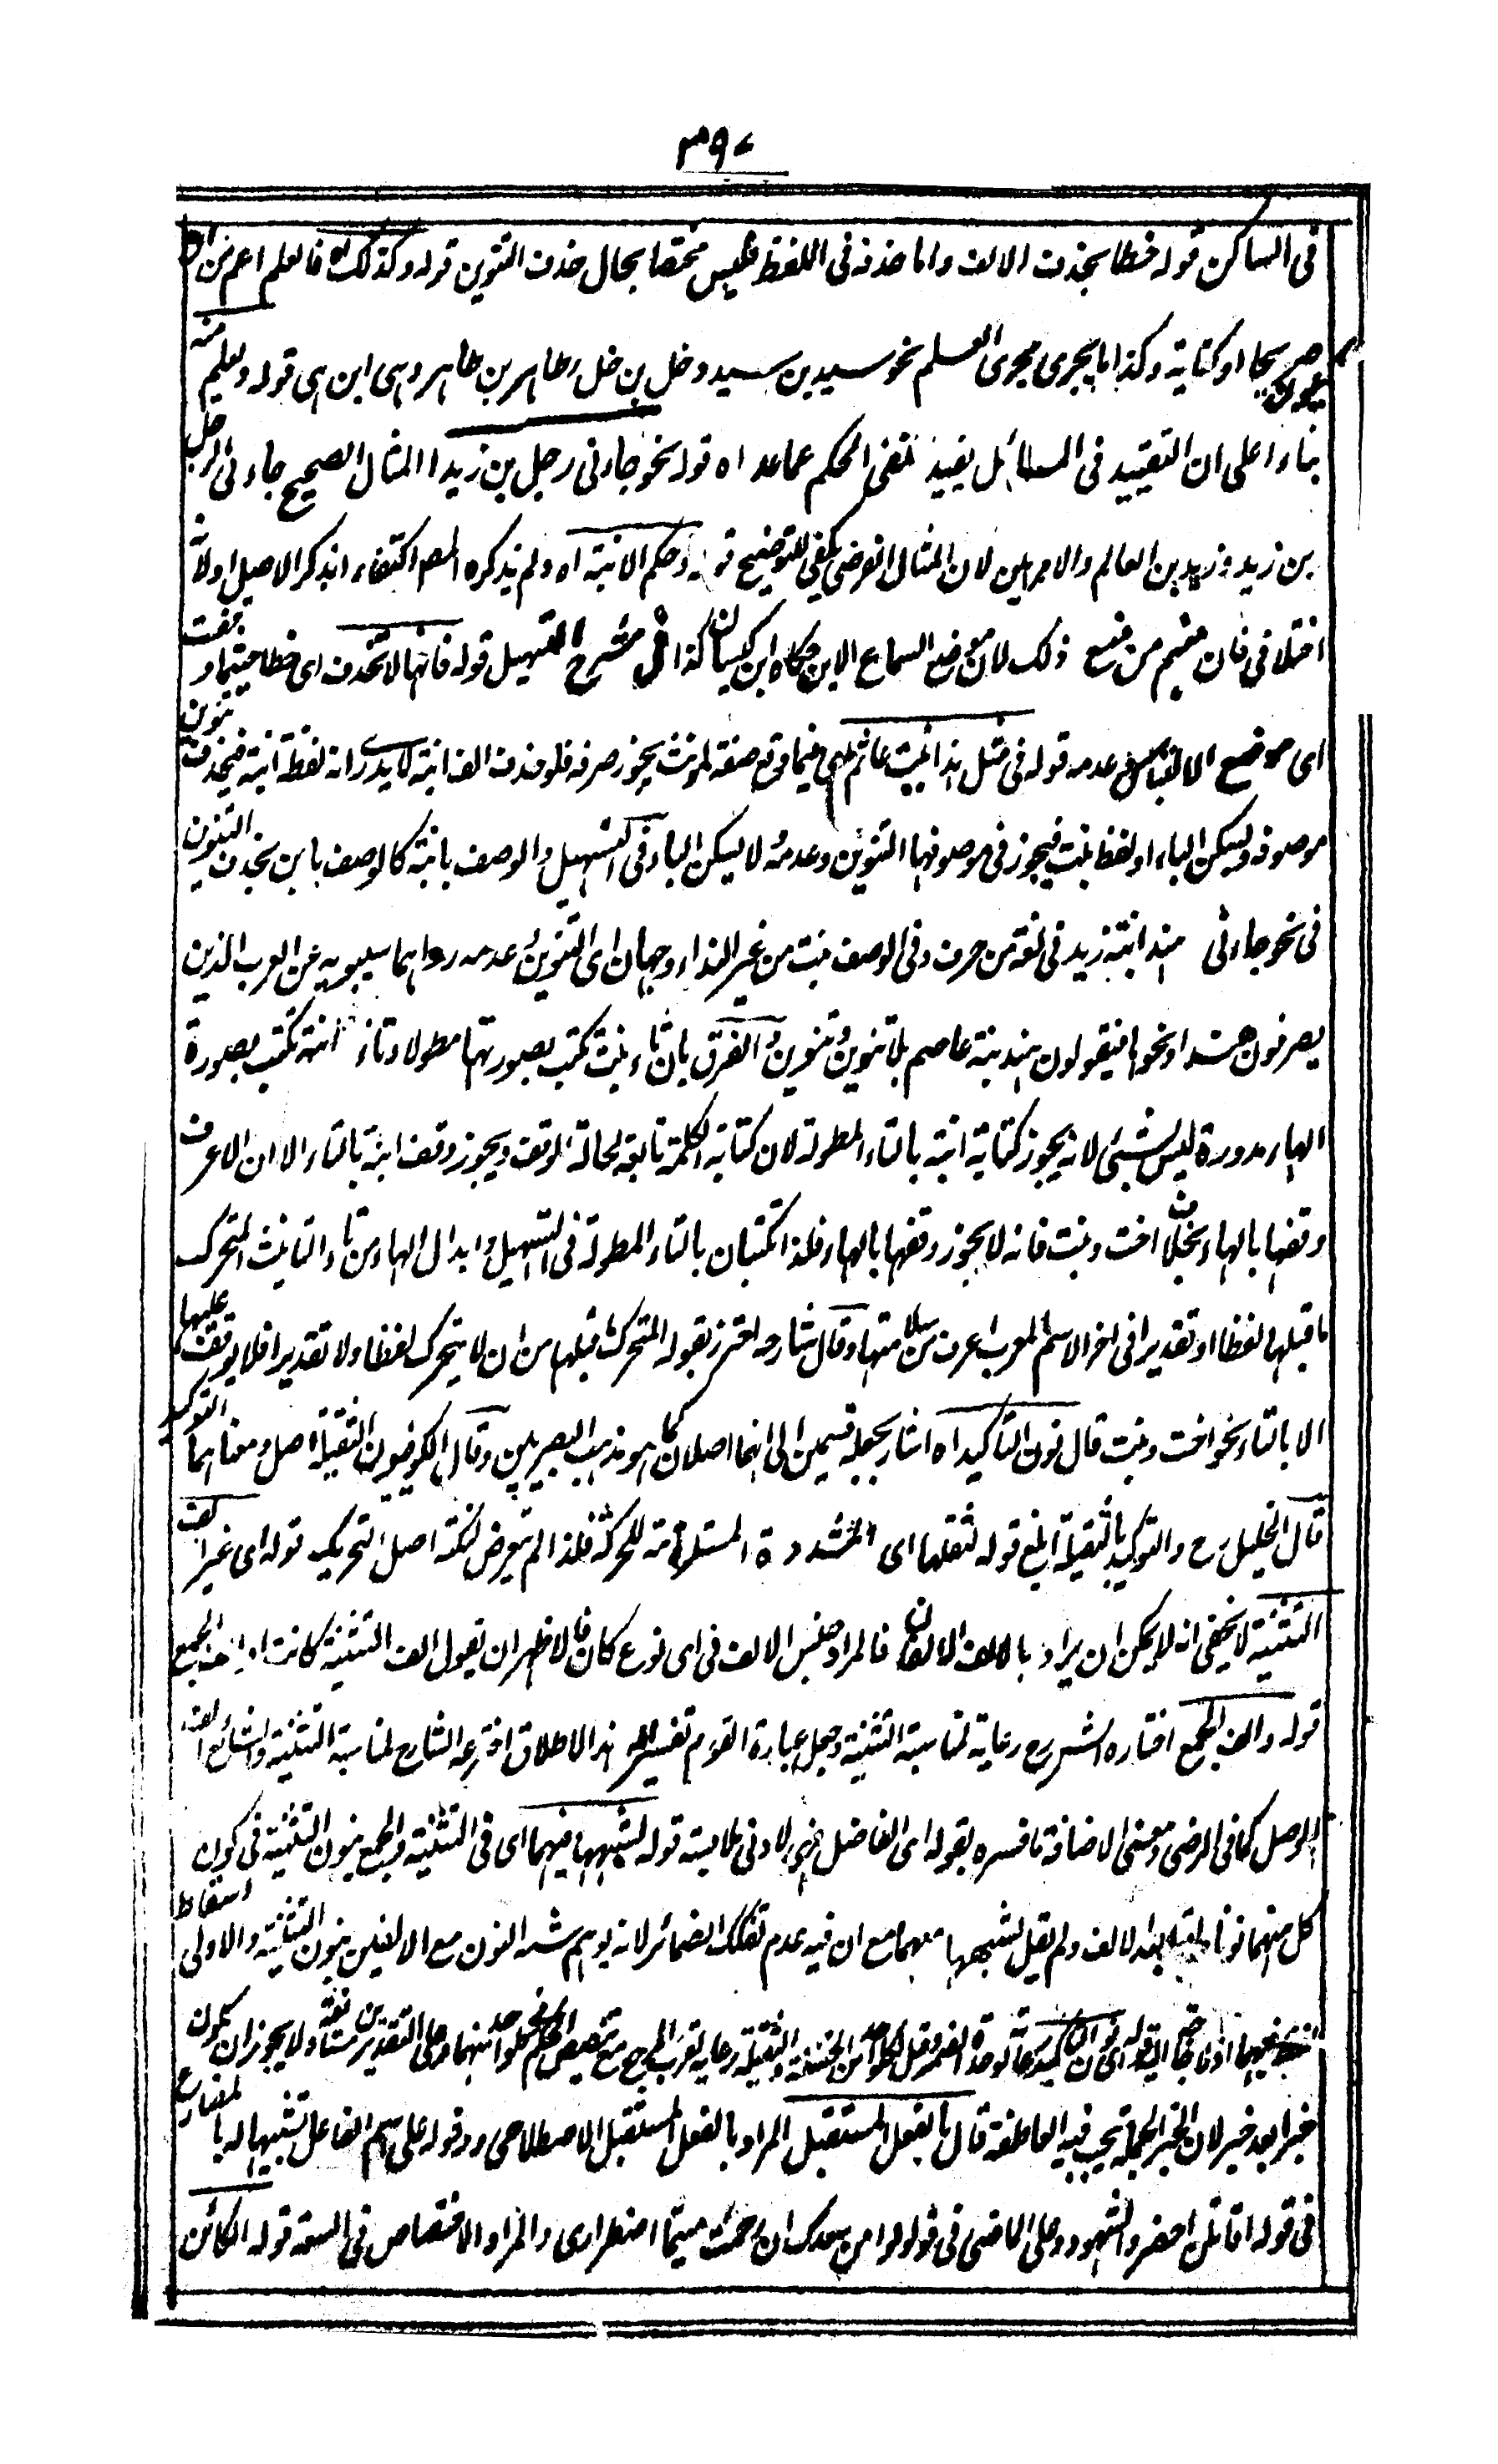 ٣٩٠
فى الساكن قوله خطا بحذف الالف واما حذفه فى اللفظ فليس مختصا بحال حذف التنوين قوله وكذلك اه فالعلم اعم من ان
يكون صريحا او كناية وكذا ما يجرى مجرى العلم نحو سيد بن سيد وضل بن ضل وطاهر بن طاهر وهى ابن بى قوله وعلم منه
بناء على ان التقييد فى المسائل يفيد نفى الحكم عما عداه قوله نحو جاءنى رجل بن زيد االمثال الصحيح جاءنى الرجل
بن زيد وزيد بن العالم والامر هين لان المثال الفرضى يكفى للتوضيح قوله وحكم الابنة اه ولم يذكره المصـ اكتفاء بذكر الاصل اولانه
اختلافى فان منهم من منع ذلك لان موضع السماع الابن حكاه ابن كيسان كذا فى شرح التسهيل قوله فانها لا تحذف اى خطا حيثما وقعت
اى موضع الالتباس عدمه قوله فى مثل هذا بنت عاثم اى فيما وقع صفة لمونث يجوز صرفه فلو حذف الف ابنة لا يدرى انه لفظة ابنة فيحذف تنوين
موصوفه ويسكن الباء او لفظ بنت فيجوز فى موصوفها التنوين وعدمه لا ليسكن الباء وفى التسهيل والوصف بابنة كالوصف بابن بحذف التنوين
فى نحو جاءنى هند ابنة زيد فى لغة من صرف وفى الوصف ببنت من غير النداء وجهان اى التنوين وعدمه رواهما سيبويه عن العرب الذين
يصرفون هندا ونحوها فيقولون هند بنة عاصم بلا تنوين وتنوين والفرق بان تاء بنت تكتب بصورتها مطولا وتاء ابنة تكتب بصورة
الهاء مدورة ليس بشئى لانه يجوز كتابة ابنة بالتاء المطولة لان كتابة الكلمة تابعة لحالة الوقف ويجوز وقف ابنة بالتاء الا ان الاعرف
وقفها بالهاء بخلاف اخت وبنت فانه لا يجوز وقفها بالهاء فلذا تكتبان بالتاء المطولة فى التسهيل وابدال الهاء من تاء التانيث المتحرك
ما قبلها لفظا او تقديرا فى اخر الاسم المعرب اعرف من سلامتها وقال شارحه احترز بقوله المتحرك قبلها من ان لا يتحرك لفظا ولا تقديرا فلا يوقف عليها
الا بالتاء نحو اخت وبنت قال نون التاكيد اه اشار بجعله قسمين الى انهما اصلان كما هو مذهب البصريين وقال الكوفيون الثقيلة اصل ومعناهما التوكيد
قال الخليل رح والتوكيد بالثقيلة ابلغ قوله لثقلها اى المشددة المستلزمة للحركة فلذا لم يتعرض لنكتة اصل التحريك قوله اى غير الف
التثنية لا يخفى انه لا يمكن ان يراد بالالف الالفان فالمراد جنس الالف فى اى نوع كان فالاظهر ان يقول الف التثنية كانت او الف الجمع
قوله والف الجمع اختاره الشـ رح رعاية لمناسبة التثنية وجعل عبارة القوم تفسيرا له هذا الاطلاق اخترعه الشارح لمناسبة التثنية والشائع الف
الوصل كما فى الرضى ومعنى الاضافة ما فسره بقوله اى الفاضل فهى لادنى ملابسة قوله لشبهها فيهما اى فى التثنية والجمع بنون التثنية فى كون
كل منهما نونا بعد الالف ولم يقل لشبهها بهما مع ان فيه عدم تفكك الضمائر لانه يوهم شبه النون مع الالفين بنون التثنية والاولى اسقاط
خبرا بعد خبر لان الخبر الجملة تجب فيه العاطفة قال بالفعل المستقبل المراد بالفعل المستقبل الاصطلاحى ودخوله على اسم الفاعل تشبيها له بالمضارع
فى قوله اقائلن احضروا الشهود وعلى الماضى فى قوله دامن سعدك ان رحمت متيما اضطرارى والمراد الاختصاص فى السعة قوله الكائن